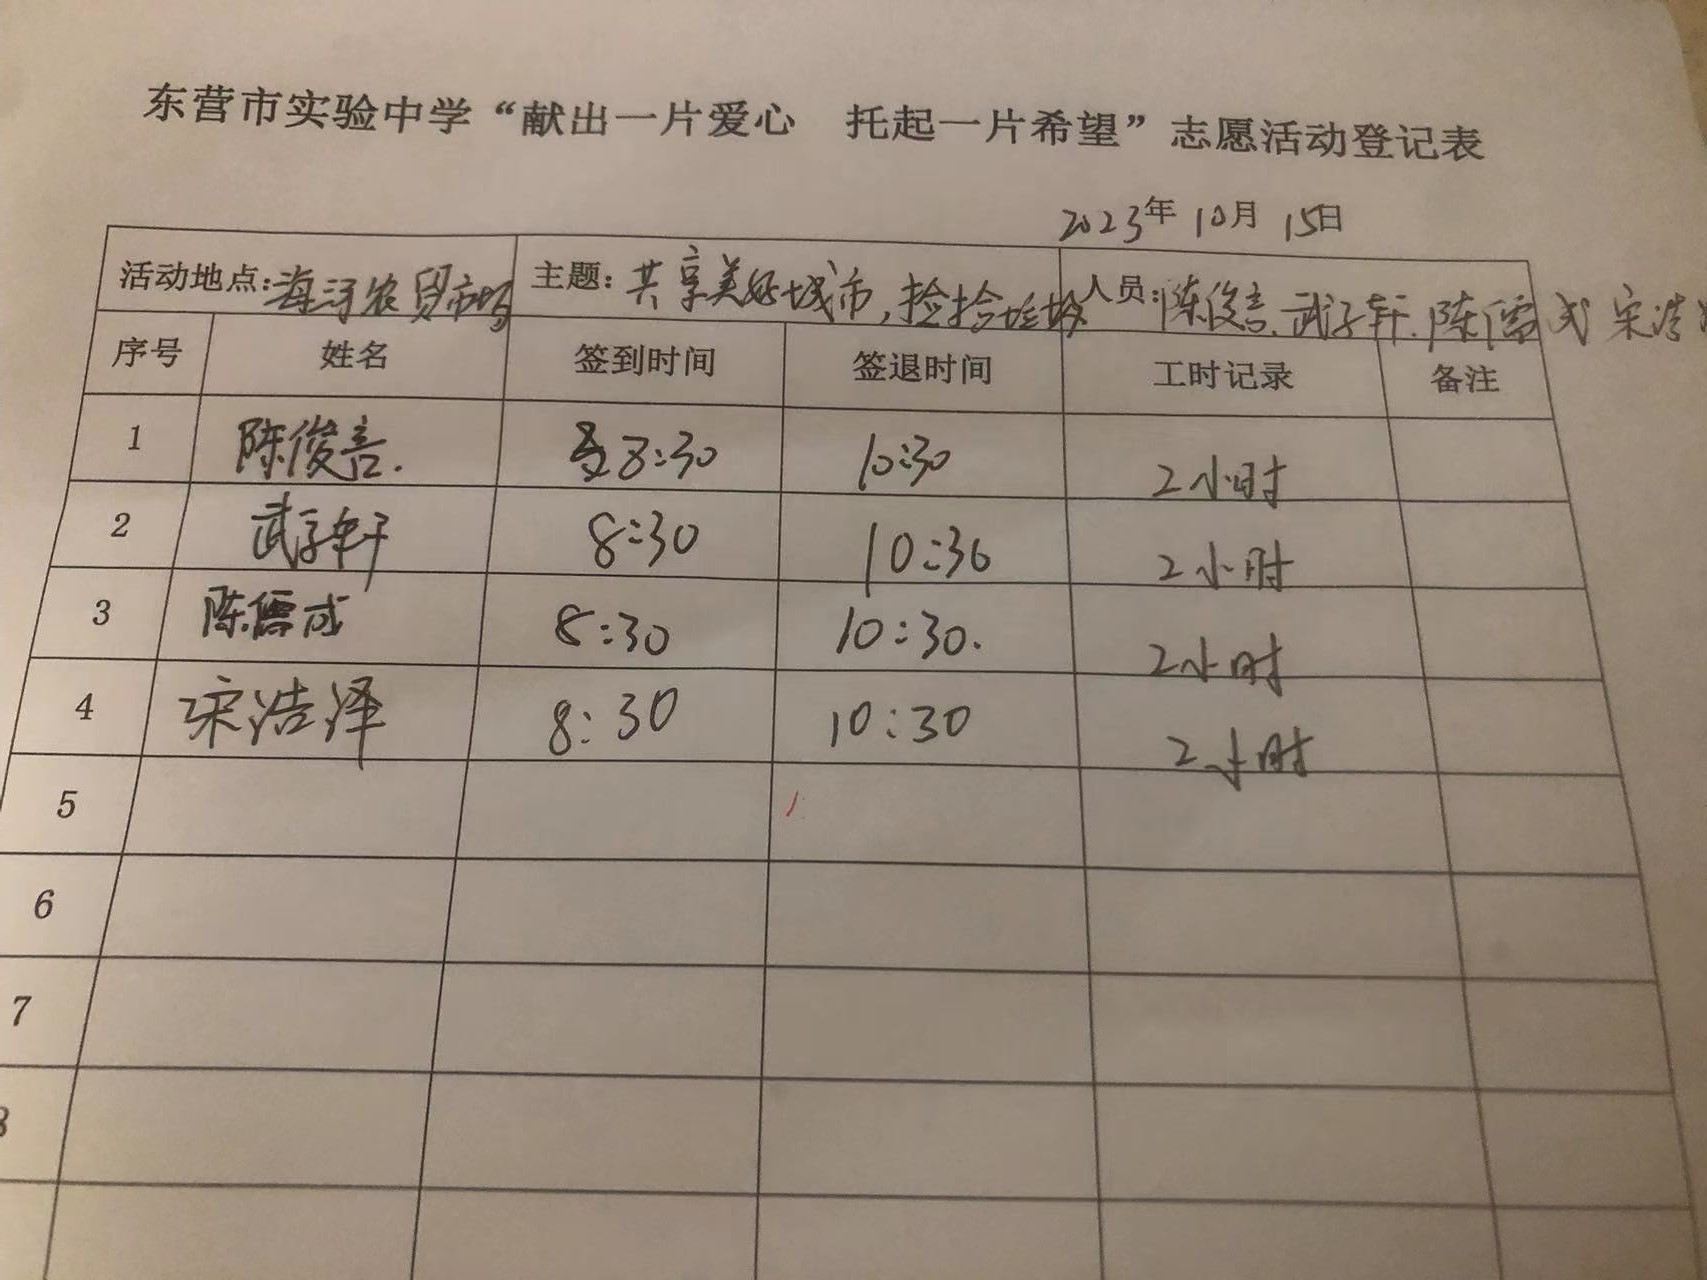 东营市实验中学“献出一片爱心 托起一片希望”志愿活动登记表
2023年 10月 15日
活动地点:海河农贸市场 主题：共享美好城市,捡拾垃圾 人员:陈俊言.武子轩.陈儒成 宋浩
序号 姓名 签到时间 签退时间 工时记录 备注
1 陈俊言. 8:30 10:30 2小时
2 武子轩 8:30 10:30 2小时
3 陈儒成 8:30 10:30. 2小时
4 宋浩泽 8:30 10:30 2小时
5
6
7
8